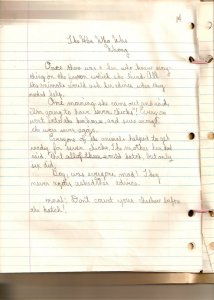 The Hen Who Was
Wrong
Once there was a hen who knew every
thing on the farm which she lived. All
the animals would ask her advice when they
needed help.
One morning she came out and said,
"I'm going to have seven chicks"! Everyone
went into the henhouse, and sure enough
there were seven eggs.
Everyone of the animals helped to get
ready for seven chicks. The mother hen had
said that all of them would hatch, but only
six did.
Boy, was everyone mad! They
never again asked her advice.
moral: Don't count your chickens before
the hatch!